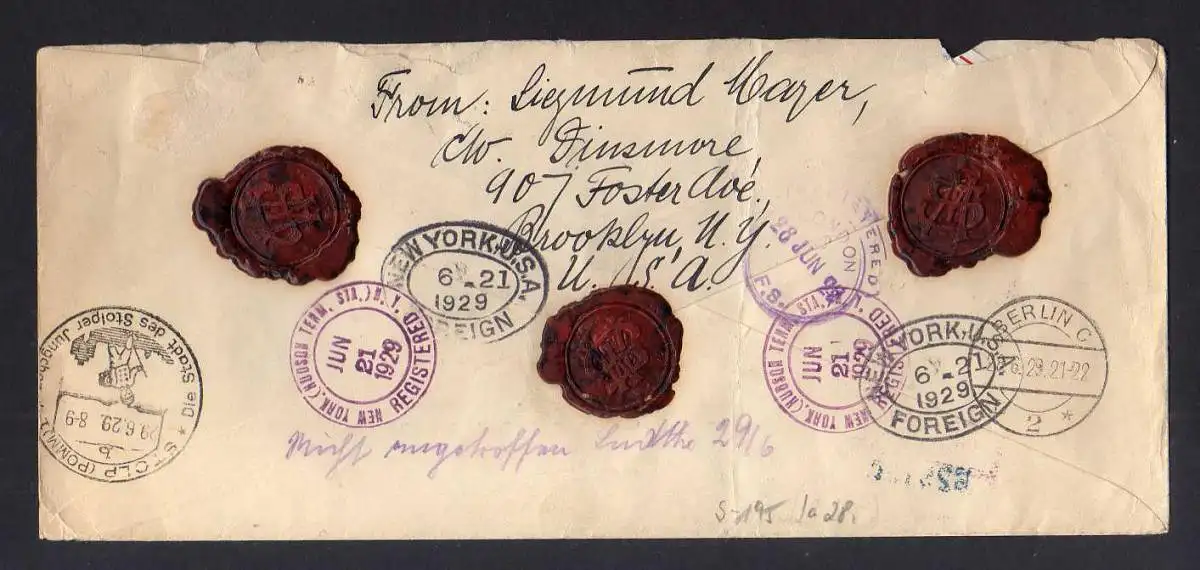 From: Siegmund Mayer,
c/o. Dinsmore,
907 Foster Ave.,
Brooklyn, N.Y.
U.S.A.
NEW YORK, U.S.A.
6 21
1929
FOREIGN
NEW YORK, (HUDSON TERM. STA.) N.Y.
JUN
21
1929
REGISTERED
REGISTERED
LONDON
28 JUN 29
F.S.
NEW YORK, (HUDSON TERM. STA.) N.Y.
JUN
21
1929
REGISTERED
NEW YORK, U.S.A.
6 21
1929
FOREIGN
BERLIN C
6.29.21-22
2 *
* Die Stadt des Stolper Jungchen
29.6.29. 8-9
b
STOLP (POMM)1
Nicht angetroffen Lüdtke 29/6
S-195 /a 28.